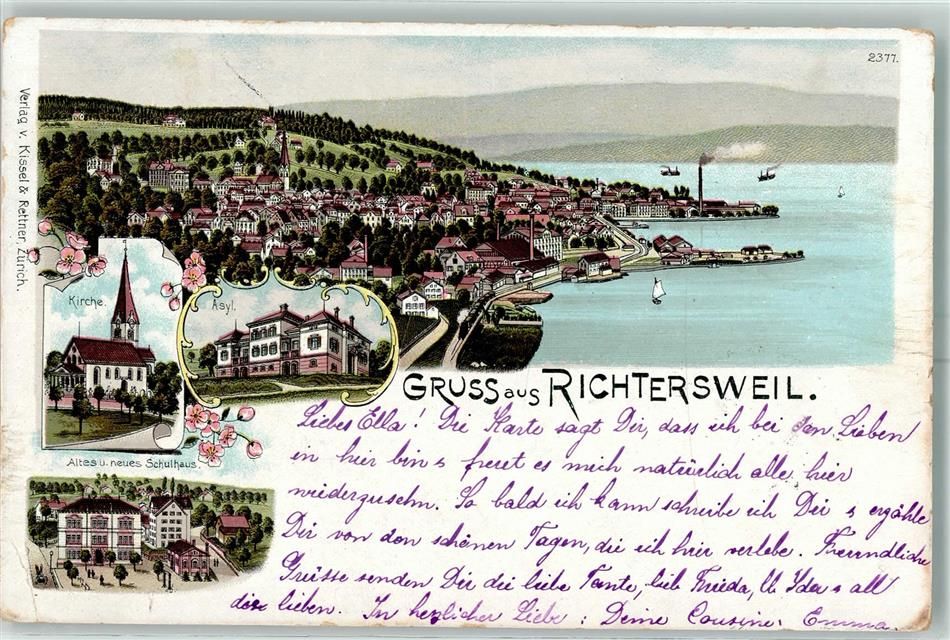 2377.
Verlag v. Kissel & Rettner, Zürich.
Kirche.
Asyl.
GRUSS aus RICHTERSWEIL.
Altes u. neues Schulhaus.
Liebes Ella! Die Karte sagt Dir, dass ich bei den Lieben
in hier bin s freut es mich natürlich alle hier
wiederzusehn. So bald ich kann schreibe ich Dir s erzähle
Dir von den schönen Tagen, die ich hier verlebe. Freundliche
Grüsse senden Dir die liebe Tante, lieb Frieda, lb Ida s all
die lieben. In herzlicher Liebe: Deine Cousine: Emma.